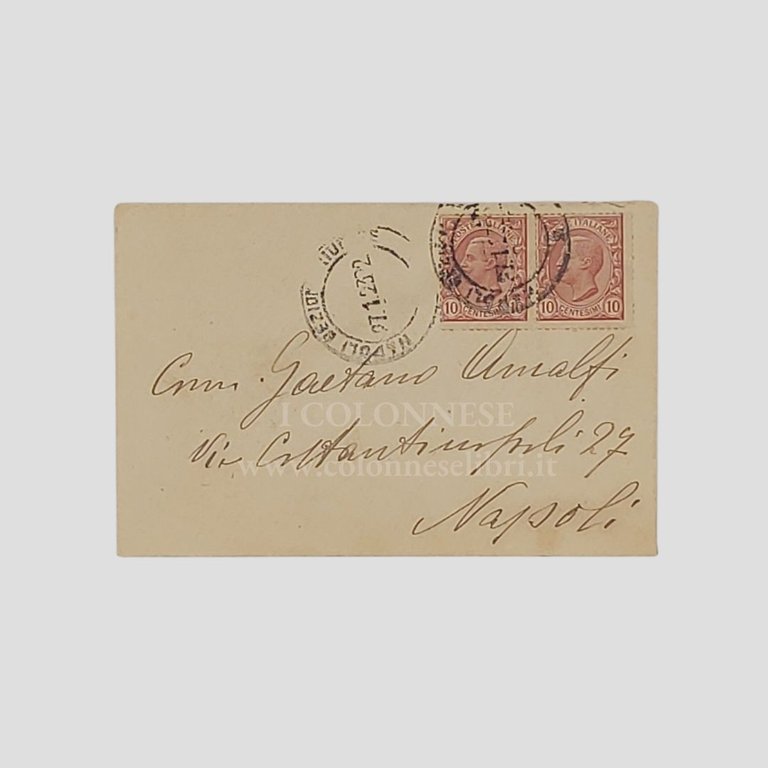 POSTE ITALIANE
10 CENTESIMI 10
10 CENTESIMI 10
NAPOLI
Comm. Gaetano Amalfi
I COLONNESE
Via Costantinopoli 27
www.colonneselibri.it
Napoli